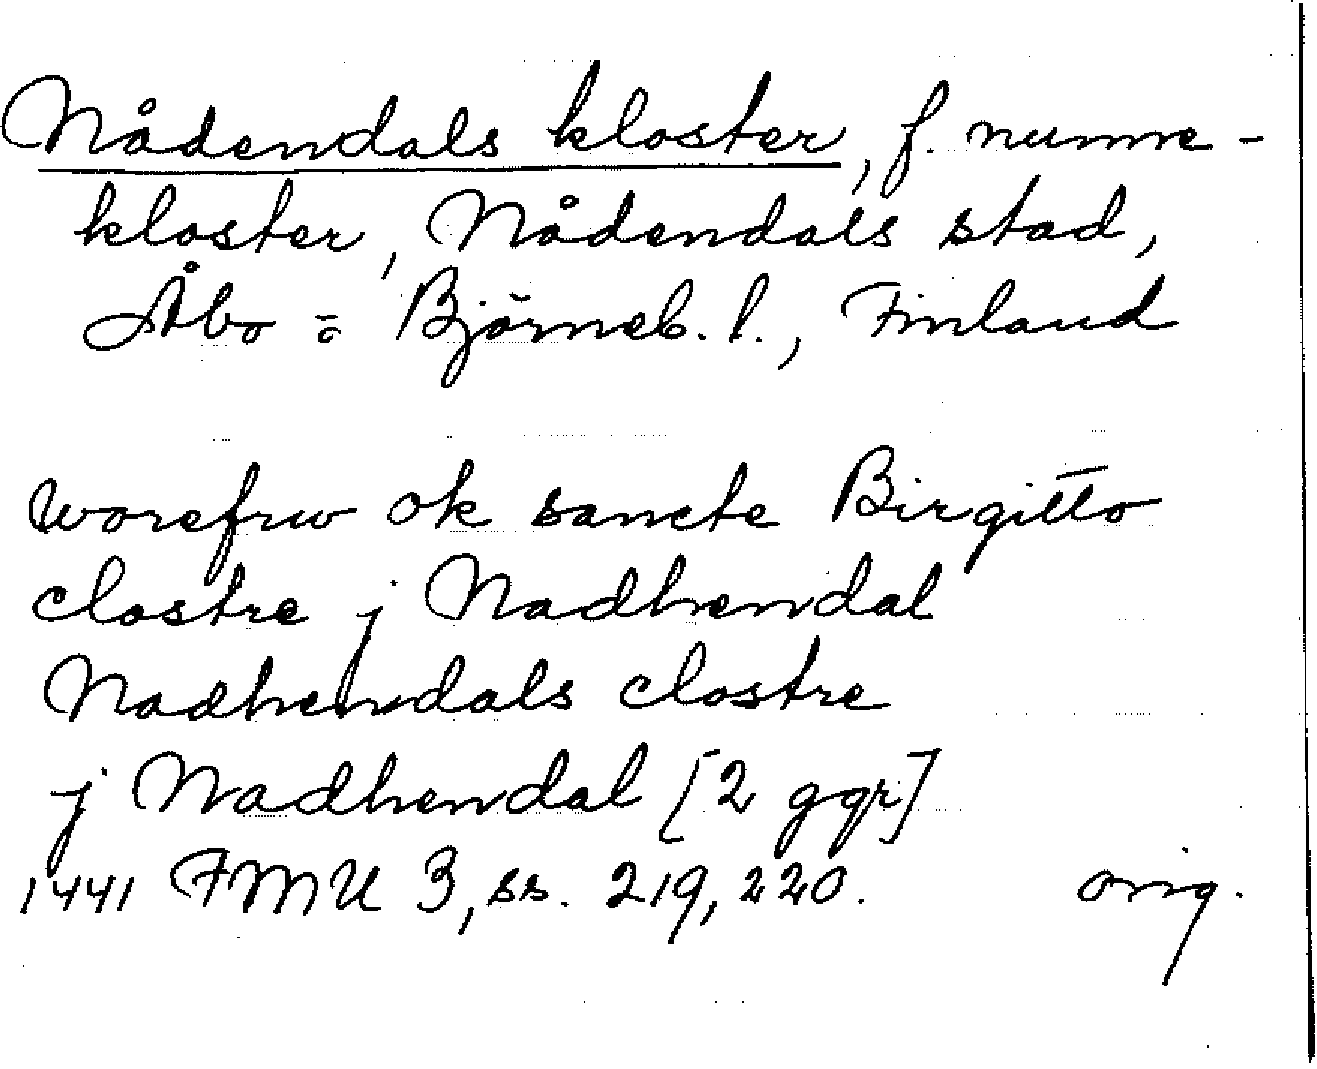 Nådendals kloster, f. nunne-
kloster, Nådendals stad,
Åbo o. Björneb. l., Finland
worefrw ok sancte Birgitto
clostre j Nadhendal
Nadhendals clostre
j Nadhendal [2 ggr]
1441 FMU 3, ss. 219, 220. orig.